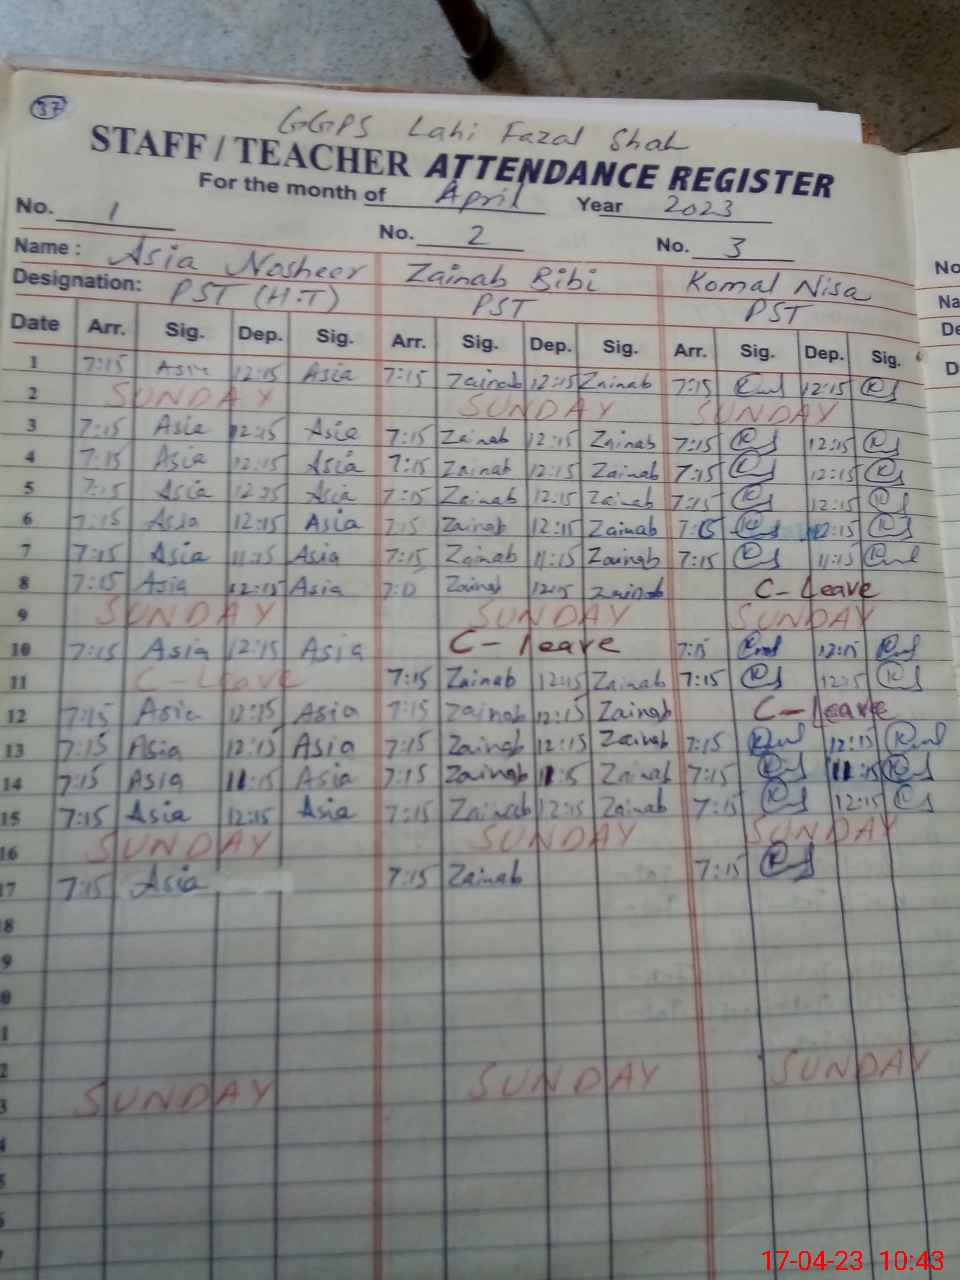 37
GGPS Lahi Fazal Shah
STAFF / TEACHER ATTENDANCE REGISTER
For the month of April Year 2023
No. 1 No. 2 No. 3
Name : Asia Nosheer Zainab Bibi Komal Nisa
Designation: PST (H.T) PST PST
Date Arr. Sig. Dep. Sig. Arr. Sig. Dep. Sig. Arr. Sig. Dep. Sig.
1 7:15 Asia 12:15 Asia 7:15 Zainab 12:15 Zainab 7:15 12:15
2 SUNDAY SUNDAY SUNDAY
3 7:15 Asia 12:15 Asia 7:15 Zainab 12:15 Zainab 7:15 12:15
4 7:15 Asia 12:15 Asia 7:15 Zainab 12:15 Zainab 7:15 12:15
5 7:15 Asia 12:15 Asia 7:15 Zainab 12:15 Zainab 7:15 12:15
6 7:15 Asia 12:15 Asia 7:15 Zainab 12:15 Zainab 7:15 12:15
7 7:15 Asia 11:15 Asia 7:15 Zainab 11:15 Zainab 7:15 11:15
8 7:15 Asia 12:15 Asia Zainab 12:15 Zainab C-Leave
9 SUNDAY SUNDAY SUNDAY
10 7:15 Asia 12:15 Asia C-leave 7:15 12:15
11 C-Leave 7:15 Zainab 12:15 Zainab 7:15 12:15
12 7:15 Asia 12:15 Asia 7:15 Zainab 12:15 Zainab C-Leave
13 7:15 Asia 12:15 Asia 7:15 Zainab 12:15 Zainab 7:15 12:15
14 7:15 Asia 11:15 Asia 7:15 Zainab 11:15 Zainab 7:15 11:15
15 7:15 Asia 12:15 Asia 7:15 Zainab 12:15 Zainab 7:15 12:15
16 SUNDAY SUNDAY SUNDAY
17 7:15 Asia 7:15 Zainab 7:15
8
9
0
1
2
3 SUNDAY SUNDAY SUNDAY
4
5
6
7
No
Na
De
D
17-04-23 10:43